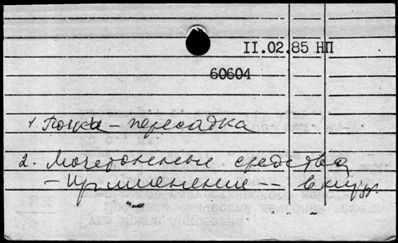 II.02.85 НП
60604
1. Почки - пересадка
2. Мочегонные средства
- применение --